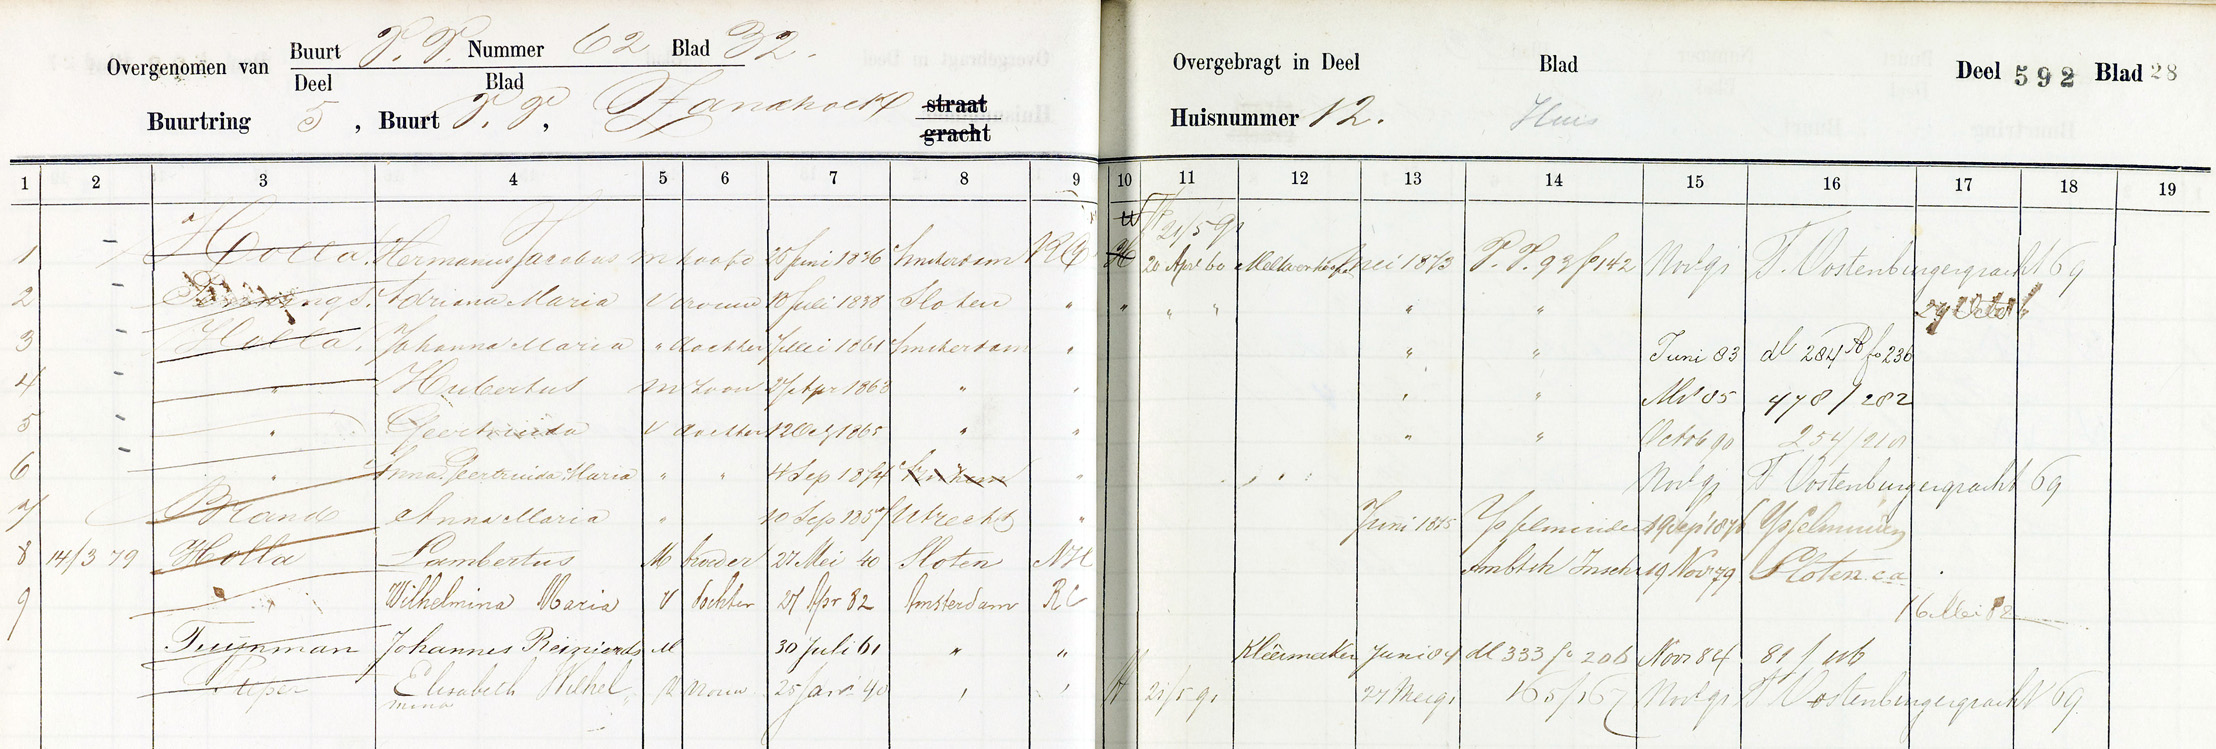 Overgenomen van Buurt P. P. Nummer 62 Blad 32.
Deel Blad
Buurtring 5, Buurt P. P., Zandhoek straat gracht
Overgebragt in Deel Blad Deel 592 Blad 28
Huisnummer 12. Huis
1 2 3 4 5 6 7 8 9 10 11 12 13 14 15 16 17 18 19
21/5 91
1 Holla, Hermanus Jacobus m hoofd 28 Juni 1836 Amsterdam RC H 20 Apr 60 Mei 1873 P. P. 93 f 142 Nov 91 T. Oostenburgergracht 69
2 Adriana Maria v vrouw 18 Juli 1838 Sloten " " " " " " 24 Octob
3 Holla, Johanna Maria " dochter Mei 1861 Amsterdam " " " Juni 83 dl 284 fo 236
4 " Hubertus m zoon 27 Apr 1863 " " " " 85 478/282
5 " Geertruida v dochter 12 Oct 1865 " " " " Octob 90 254/210
6 " Anna Geertruida Maria " " 4 Sep 1874 " Nov 91 T Oostenburgergracht 69
7 Brand Anna Maria " 10 Sep 1857 Utrecht " Juni 1875 IJsselmuiden 19 Sep 1876 IJsselmuiden
8 14/3 79 Holla Lambertus M broeder 27 Mei 40 Sloten NH Ambtsh Inschr 19 Nov 79 Sloten c.a.
9 " Wilhelmina Maria V dochter 27 Apr 82 Amsterdam RC 16 Mei 82
Tuynman Johannes Reinierds M 30 Juli 61 " " Kleermaker Juni 84 dl 333 fo 206 Nov 84 81/
Elisabeth Wilhelmina v 25 Jan 40 " " H 21/5 91 27 Mei 91 165/167 Nov 91 T Oostenburgergracht 69